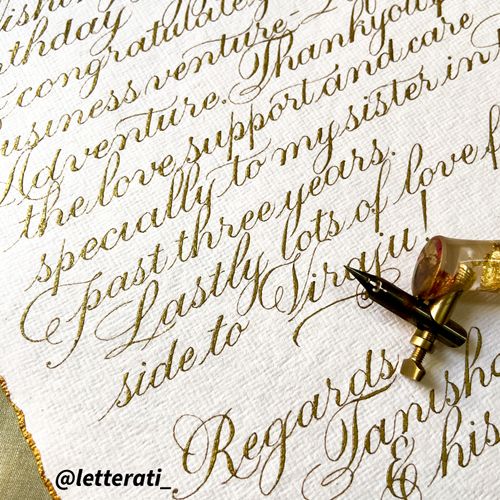 rthday
congratulate
usiness venture-
Adventure. Thankyou
the love, support and care
specially to my sister in
past three years.
Lastly lots of love f
side to Viraju!
Regards,
Tanisha
& his
@letterati_